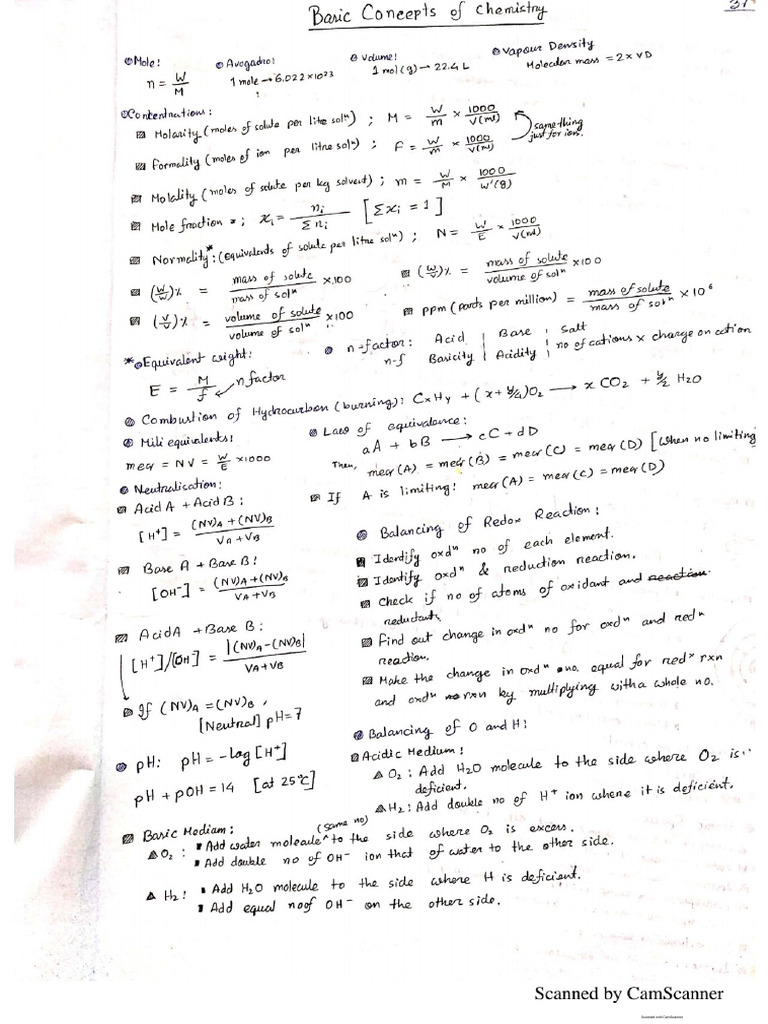 Basic Concepts of Chemistry
37
Mole:
n = W/M
Avogadro:
1 mole → 6.022×10²³
Volume:
1 mol(g) → 22.4 L
Vapour Density
Molecular mass = 2 × VD
Concentrations:
Molarity (moles of solute per litre solⁿ) ; M = W/m × 1000/V(ml)
Formality (moles of ion per litre solⁿ) ; F = W/m × 1000/V(ml)
same thing just for ions.
Molality (moles of solute per kg solvent) ; m = W/M × 1000/W'(g)
Mole fraction ; xᵢ = nᵢ/Σnᵢ [Σxᵢ = 1]
Normality* : (equivalents of solute per litre solⁿ) ; N = W/E × 1000/V(ml)
(W/W)% = mass of solute/mass of solⁿ × 100
(W/V)% = mass of solute/volume of solⁿ × 100
(V/V)% = volume of solute/volume of solⁿ × 100
ppm (parts per million) = mass of solute/mass of solⁿ × 10⁶
* Equivalent weight:
E = M/f ← n factor
n-factor: Acid | Base | Salt
n-f Basicity | Acidity | no of cations × charge on cation
Combustion of Hydrocarbon (burning): CxHy + (x + y/4)O₂ → x CO₂ + y/2 H₂O
Mili equivalents:
meqr = NV = W/E × 1000
Law of equivalence:
aA + bB → cC + dD
Then, meqr(A) = meqr(B) = meqr(C) = meqr(D) [when no limiting
If A is limiting: meqr(A) = meqr(C) = meqr(D)
Neutralisation:
Acid A + Acid B:
[H⁺] = (NV)A + (NV)B / VA + VB
Base A + Base B:
[OH⁻] = (NV)A + (NV)B / VA + VB
Acid A + Base B:
[H⁺]/[OH⁻] = |(NV)A − (NV)B| / VA + VB
If (NV)A = (NV)B,
[Neutral] pH = 7
pH: pH = −log[H⁺]
pH + pOH = 14 [at 25°C]
Balancing of Redox Reaction:
Identify oxdⁿ no of each element.
Identify oxdⁿ & reduction reaction.
Check if no of atoms of oxidant and reaction
reductant.
Find out change in oxdⁿ no for oxdⁿ and redⁿ
reaction.
Make the change in oxdⁿ no. equal for redⁿ rxn
and oxdⁿ rxn by multiplying with a whole no.
Balancing of O and H:
Acidic Medium:
O₂ : Add H₂O molecule to the side where O₂ is
deficient.
H₂ : Add double no of H⁺ ion where it is deficient.
Basic Medium:
O₂ : Add water molecule ^ (same no) to the side where O₂ is excess.
Add double no of OH⁻ ion that of water to the other side.
H₂ : Add H₂O molecule to the side where H is deficient.
Add equal no of OH⁻ on the other side.
Scanned by CamScanner
Scanned with CamScanner